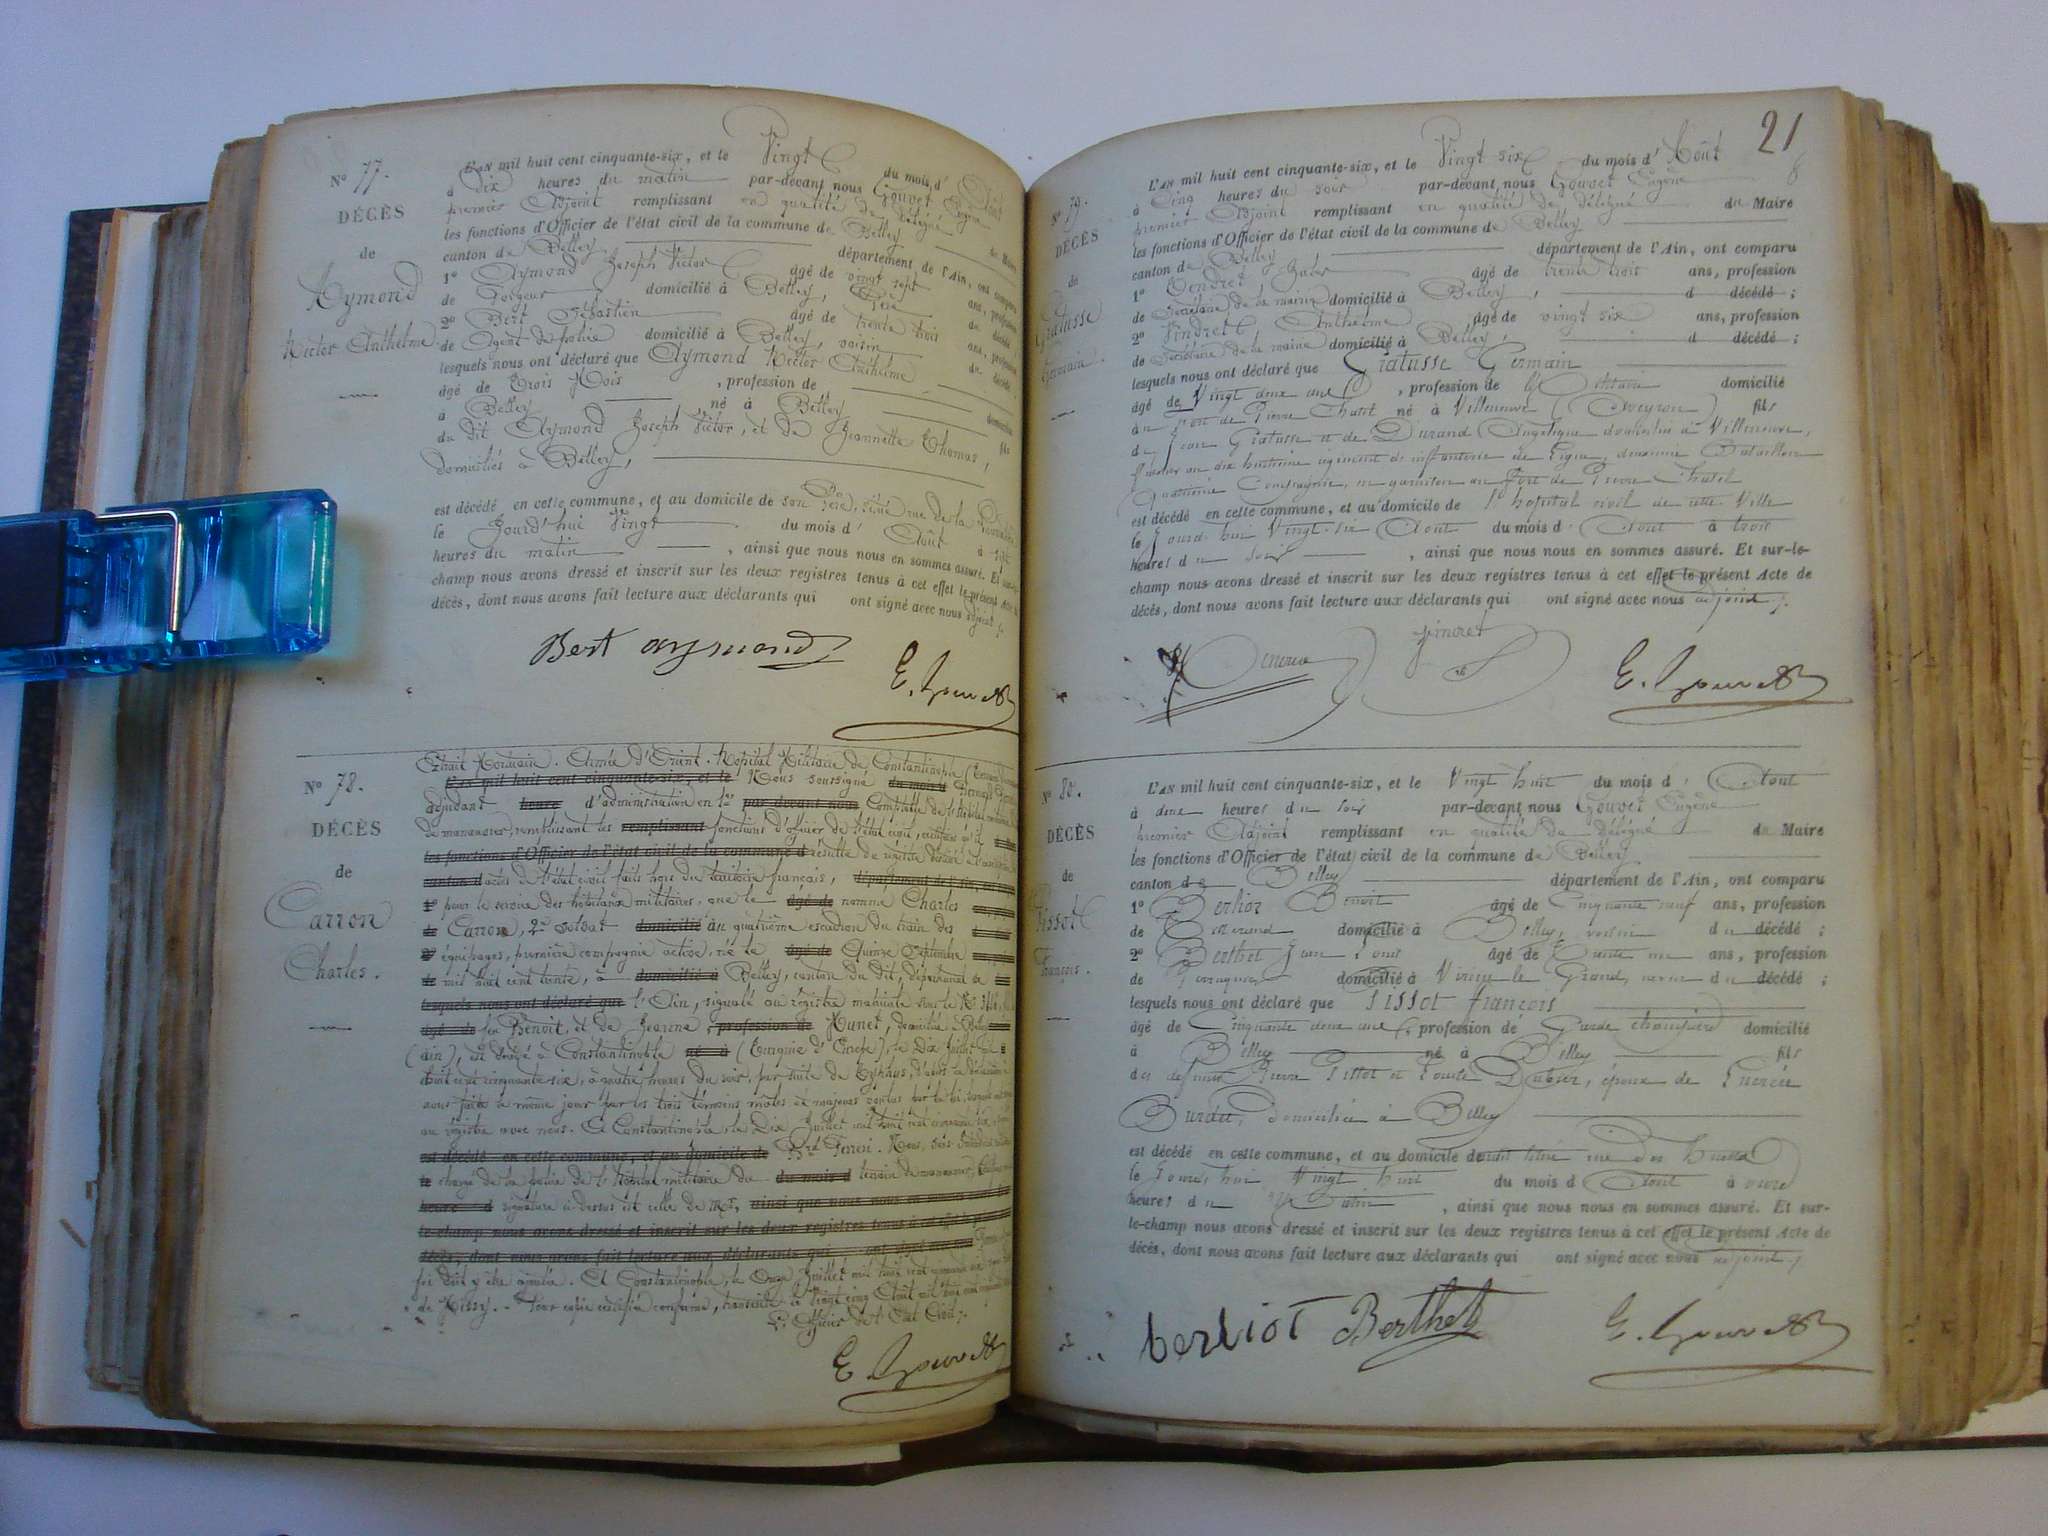 N° 77.
DÉCÈS
de
Aymond
Victor Anthelme.
L'AN mil huit cent cinquante-six, et le Vingt du mois d'Août
à Dix heures du matin par-devant nous Gouvet Eugène
premier Adjoint remplissant en qualité de délégué du Maire
les fonctions d'Officier de l'état civil de la commune de Belley
canton de Belley département de l'Ain, ont comparu
1° Aymond Joseph Victor âgé de vingt sept ans, profession
de domicilié à Belley, Père du décédé
2° Bert Sébastien âgé de trente trois ans, profession
de Agent de police domicilié à Belley, voisin du décédé
lesquels nous ont déclaré que Aymond Victor Anthelme
âgé de Trois Mois, profession de domicilié
à Belley né à Belley fils
du dit Aymond Joseph Victor, et de Jeannette Thomas,
domiciliés à Belley,
est décédé en cette commune, et au domicile de son Père, situé rue de la
le Jourd'hui Vingt du mois d'Août à
heures du matin, ainsi que nous nous en sommes assuré. Et sur-le-
champ nous avons dressé et inscrit sur les deux registres tenus à cet effet le présent Acte de
décès, dont nous avons fait lecture aux déclarants qui ont signé avec nous adjoint
Bert aymond
E. Gouvet
N° 78.
DÉCÈS
de
Carron
Charles.
Extrait Mortuaire. Armée d'Orient. Hôpital Militaire de Constantinople
L'an mil huit cent cinquante-six, et le Nous soussigné du mois d
adjudant heures d'administration en par-devant nous Comptable de l'hôpital
remplissant les remplissant fonctions d'officier de l'état civil, certifions qu'il
les fonctions d'Officier de l'état civil de la commune d résulte du registre
canton d actes de l'état civil faits hors du territoire français, département de l'Ain,
1° pour le service des hôpitaux militaires, que le âgé de nommé Charles
de Carron, 2e soldat domicilié au quatrième escadron du train des
2° équipages, première compagnie active, né le âgé de Quinze Septembre
de mil huit cent trente, à domicilié à Belley, canton du dit, département de
lesquels nous ont déclaré que l'Ain, signalé au registre matricule sous le N°
âgé de feu Benoit, et de Jeanne profession de Munet, domicilié à Belley
(Ain), est décédé à Constantinople né à (Turquie d'Europe), le Dix Juillet mil
huit cent cinquante-six, à quatre heures du soir, par suite de Typhus, d'après la déclaration
à nous faite le même jour par les trois témoins mâles et majeurs voulus par la loi,
au registre avec nous. A Constantinople, le Dix Juillet mil huit cent cinquante six,
est décédé en cette commune, et au domicile de Nous, Sous Intendant
le chargé de la police de l'hôpital militaire du du mois d
heures d signature ci-dessus est celle de Mr, ainsi que nous nous en sommes
le-champ nous avons dressé et inscrit sur les deux registres tenus à cet effet
décès, dont nous avons fait lecture aux déclarants qui ont signé avec nous
foi doit y être ajoutée. A Constantinople, le Onze Juillet mil huit cent cinquante six
de Missy. - Pour copie certifiée conforme, transcrite le Vingt cinq Août mil huit cent cinquante
L'Officier de l'Etat Civil
E. Gouvet
21
N° 79.
DÉCÈS
de
Gratusse
Germain.
L'AN mil huit cent cinquante-six, et le Vingt six du mois d'Août
à Cinq heures du soir par-devant nous Gouvet Eugène
premier Adjoint remplissant en qualité de délégué du Maire
les fonctions d'Officier de l'état civil de la commune de Belley
canton de Belley département de l'Ain, ont comparu
1° âgé de trente trois ans, profession
de Secrétaire de la mairie domicilié à Belley, d décédé;
2° Vindret Anthelme âgé de vingt six ans, profession
de Secrétaire de la mairie domicilié à Belley, d décédé;
lesquels nous ont déclaré que Gratusse Germain
âgé de Vingt deux ans, profession de domicilié
au fort de Pierre Chatel né à Villeneuve (Aveyron) fils
de Jean Gratusse et de Durand Angélique domiciliés à Villeneuve,
fusilier au dix huitième régiment de infanterie de Ligne, deuxième Bataillon
Quatrième Compagnie, en garnison au fort de Pierre Chatel
est décédé en cette commune, et au domicile de l'hopital civil de cette Ville
le Jourd'hui Vingt-six Août du mois d'Août à trois
heures du soir, ainsi que nous nous en sommes assuré. Et sur-le-
champ nous avons dressé et inscrit sur les deux registres tenus à cet effet le présent Acte de
décès, dont nous avons fait lecture aux déclarants qui ont signé avec nous adjoint
E. Gouvet
N° 80.
DÉCÈS
de
Pissot
François.
L'AN mil huit cent cinquante-six, et le Vingt huit du mois d'Août
à deux heures du soir par-devant nous Gouvet Eugène
premier Adjoint remplissant en qualité de délégué du Maire
les fonctions d'Officier de l'état civil de la commune de Belley
canton de Belley département de l'Ain, ont comparu
1° Berliot Benoit âgé de Cinquante neuf ans, profession
de domicilié à Belley, voisin du décédé;
2° Berthet Jean Louis âgé de ans, profession
de Perruquier domicilié à Virieu le Grand, neveu du décédé;
lesquels nous ont déclaré que Pissot françois
âgé de Cinquante deux ans, profession de Garde champêtre domicilié
à Belley né à Belley fils
des défunts Pierre Pissot et époux de Lucrèce
Burdet, domiciliée à Belley
est décédé en cette commune, et au domicile dudit situé rue des
le Jourd'hui Vingt huit du mois d'Août à onze
heures du Matin, ainsi que nous nous en sommes assuré. Et sur-
le-champ nous avons dressé et inscrit sur les deux registres tenus à cet effet le présent Acte de
décès, dont nous avons fait lecture aux déclarants qui ont signé avec nous adjoint
berliot Berthet
E. Gouvet